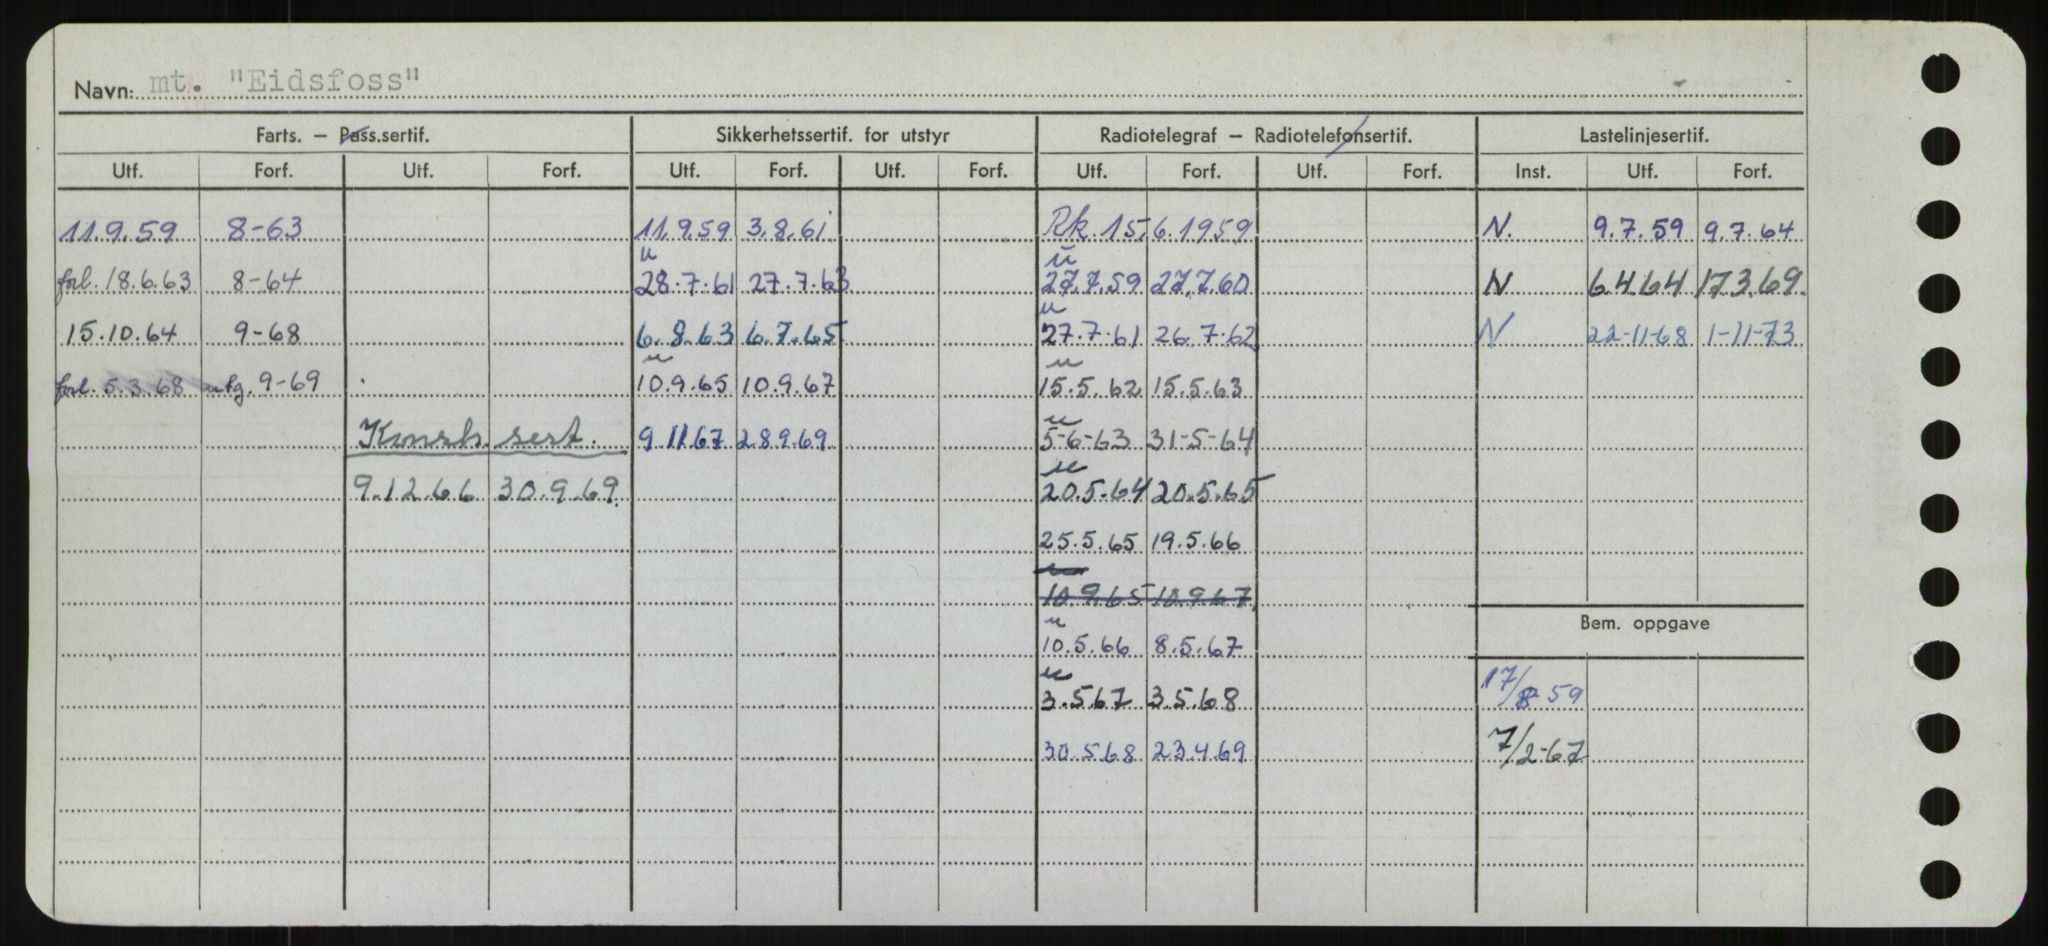 Navn: mt. "Eidsfoss"
Farts. – Pass.sertif. Sikkerhetssertif. for utstyr Radiotelegraf – Radiotelefonsertif. Lastelinjesertif.
Utf. Forf. Utf. Forf. Utf. Forf. Utf. Forf. Utf. Forf. Utf. Forf. Inst. Utf. Forf.
11.9.59 8-63 11.9.59 3.8.61 Rk. 15.6.1959 N. 9.7.59 9.7.64
u u
forl. 18.6.63 8-64 28.7.61 27.7.63 27.7.59 27.7.60 N 6.4.64 17.3.69.
u
15.10.64 9-68 6.8.63 6.7.65 27.7.61 26.7.62 N 22-11-68 1-11-73
u u
forl. 5.3.68 utg. 9-69 10.9.65 10.9.67 15.5.62 15.5.63
u
Konstr. sert. 9.11.67 28.9.69 5-6-63 31-5-64
u
9.12.66 30.9.69. 20.5.64 20.5.65
25.5.65 19.5.66
u
10.9.65 10.9.67
Bem. oppgave
u
10.5.66 8.5.67
u
3.5.67 3.5.68 17/8 59
30.5.68 23.4.69 7/2-67